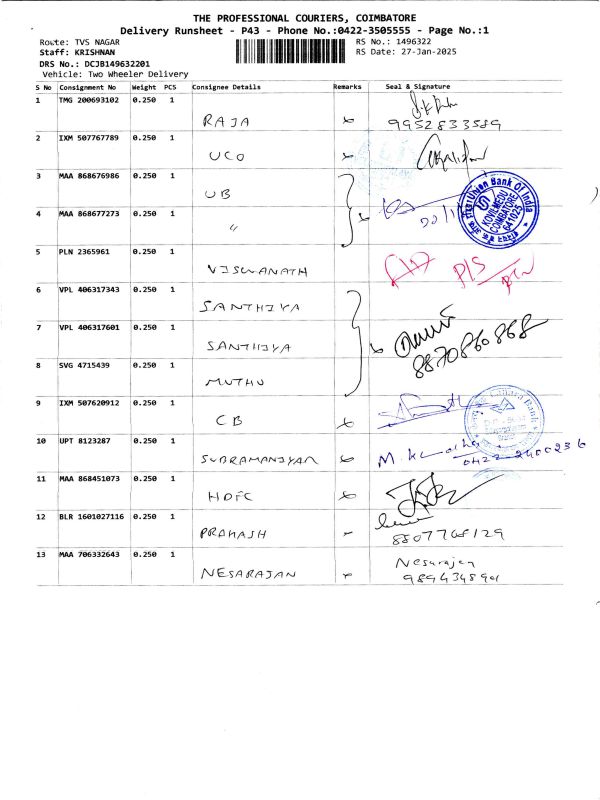 THE PROFESSIONAL COURIERS, COIMBATORE
Delivery Runsheet - P43 - Phone No.:0422-3505555 - Page No.:1
Route: TVS NAGAR RS No.: 1496322
Staff: KRISHNAN RS Date: 27-Jan-2025
DRS No.: DCJB149632201
Vehicle: Two Wheeler Delivery
S No Consignment No Weight PCS Consignee Details Remarks Seal & Signature
1 TMG 200693102 0.250 1 RAJA
9952833589
2 IXM 507767789 0.250 1 UCO
3 MAA 868676986 0.250 1 UB
Union Bank Of India
KOVILMEDU
COIMBATORE
641025
4 MAA 868677273 0.250 1 "
5 PLN 2365961 0.250 1 VISWANATH
6 VPL 406317343 0.250 1 SANTHIYA
7 VPL 406317601 0.250 1 SANTHIYA
8870860868
8 SVG 4715439 0.250 1 MUTHU
9 IXM 507620912 0.250 1 CB
Canara Bank
10 UPT 8123287 0.250 1 SUBRAMANIYAM
0422 2400236
11 MAA 868451073 0.250 1 HDFC
12 BLR 1601027116 0.250 1 PRAKASH
8807768129
13 MAA 706332643 0.250 1 NESARAJAN Nesarajan